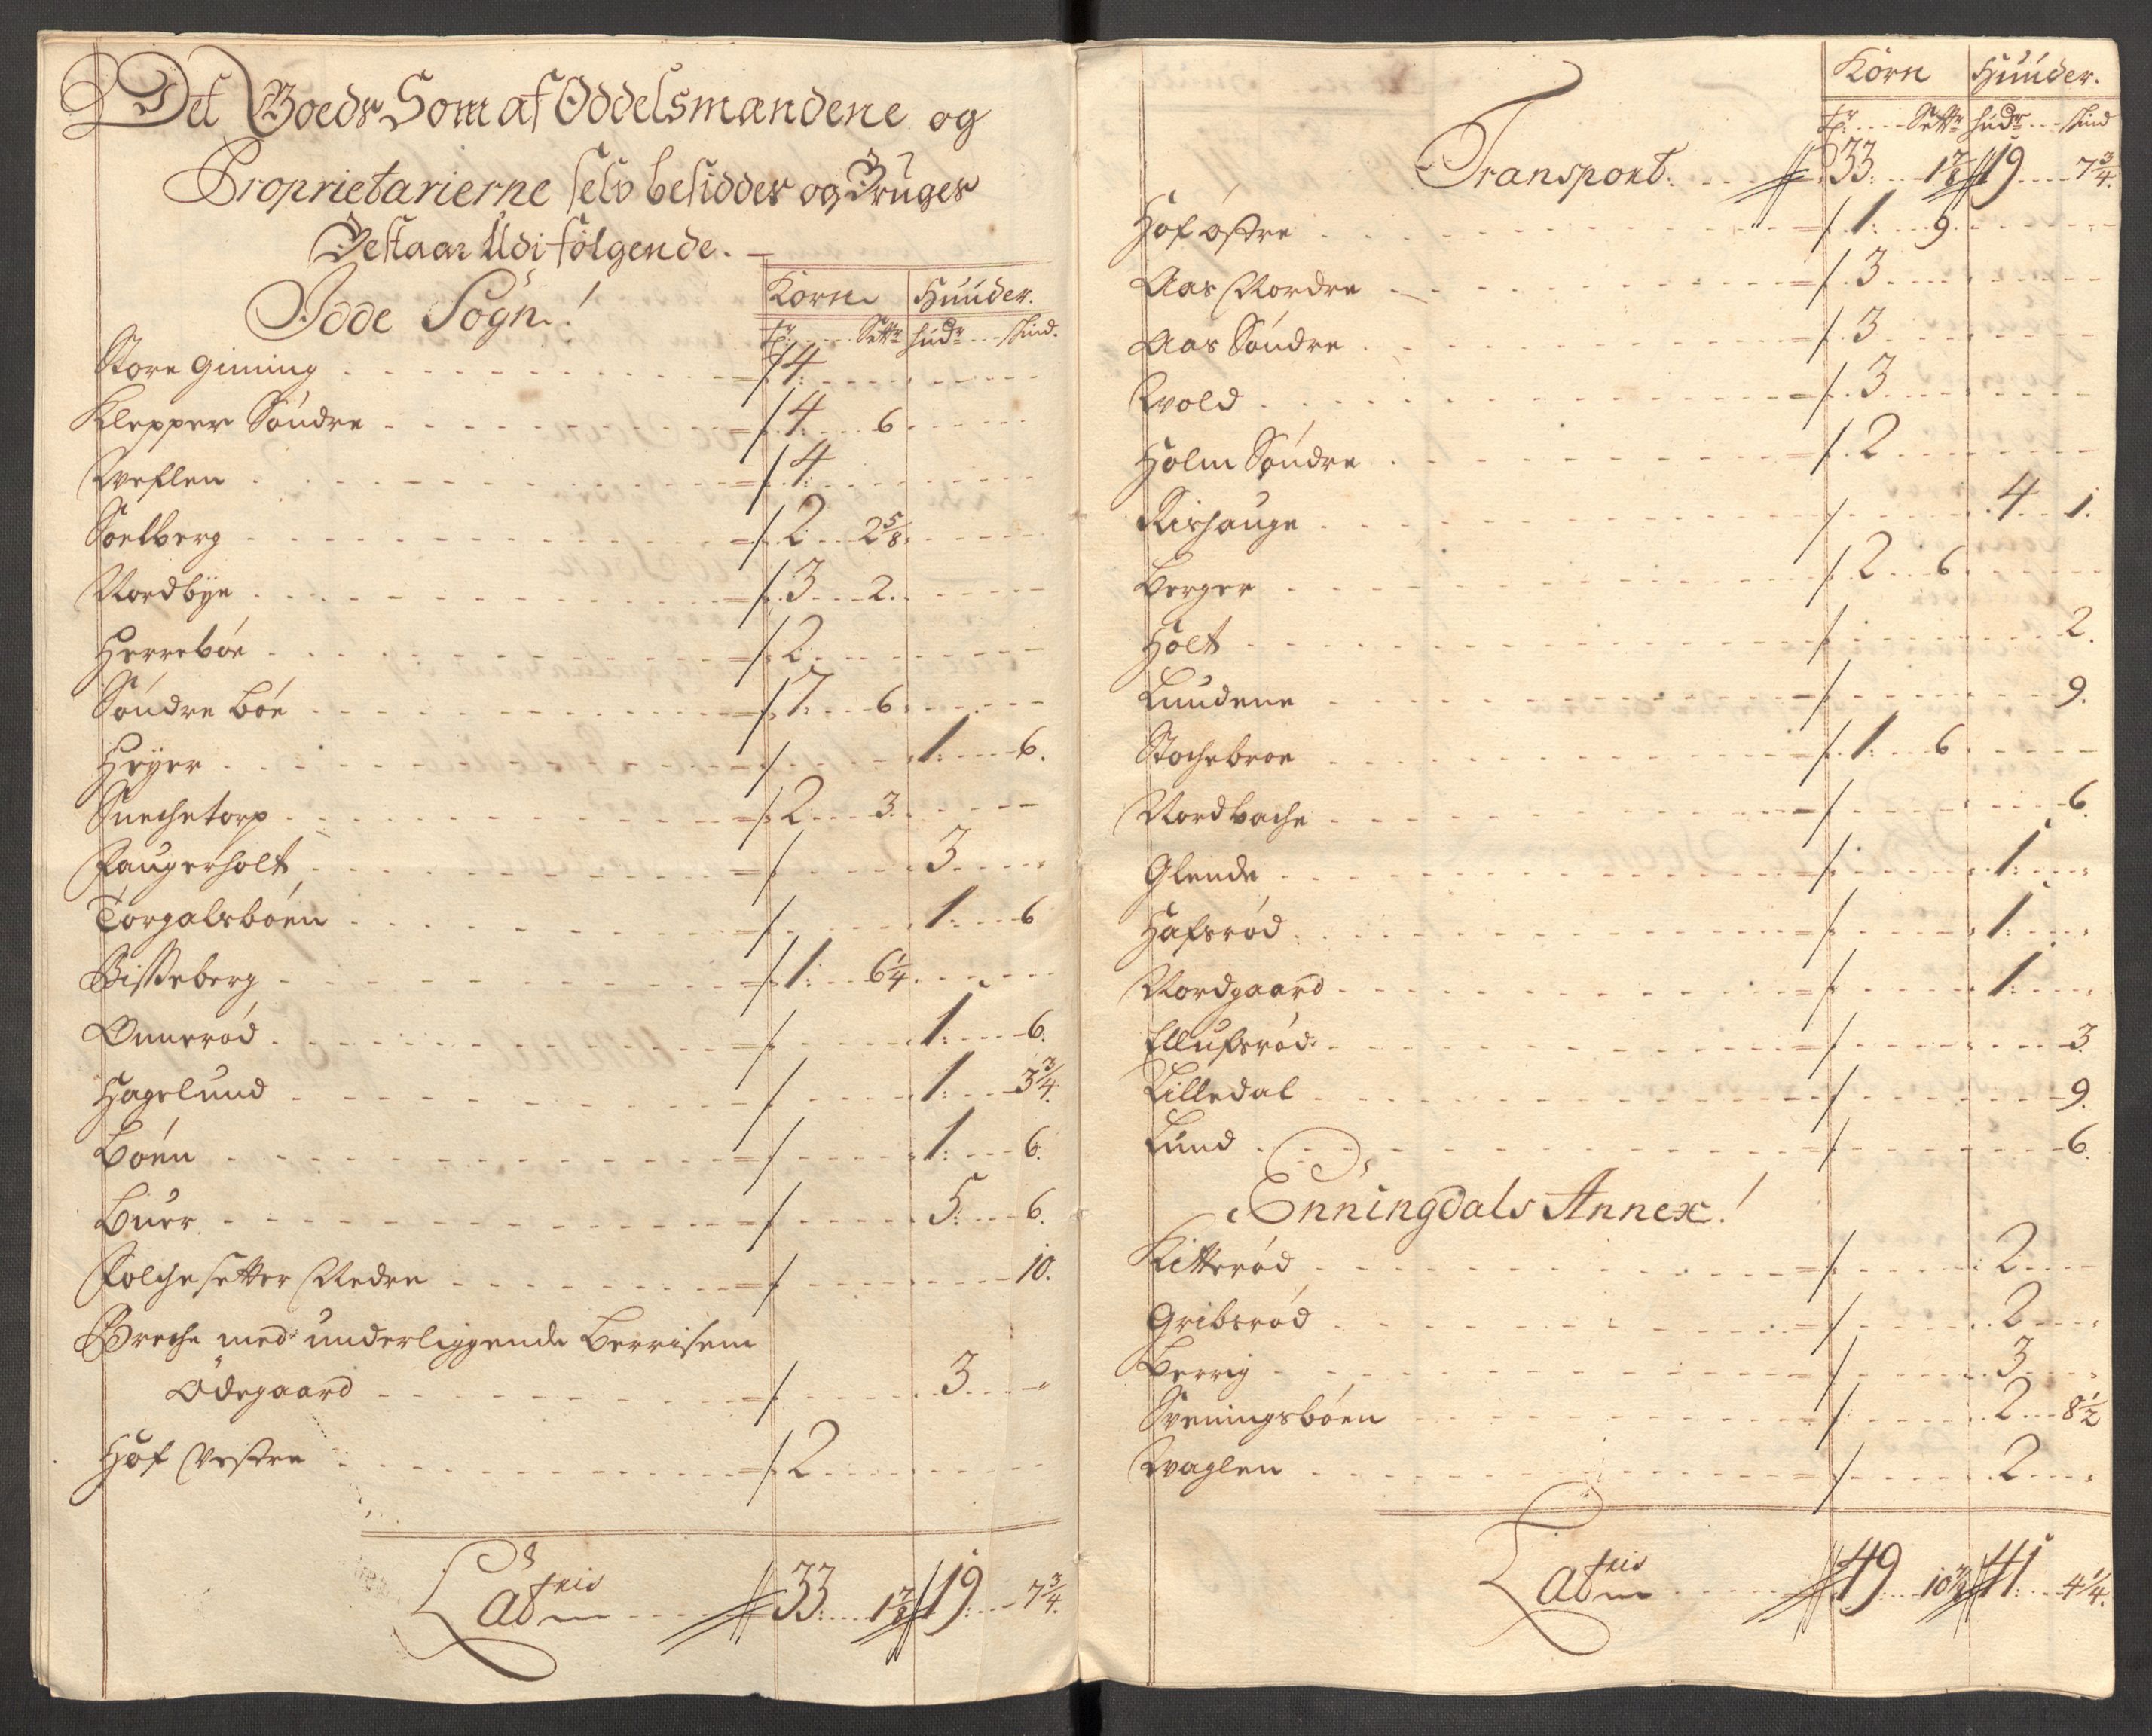 Det Boeds Som af Oddelsmandene og
Proprietarierne selv besidder og Bruger
Bestaar Udi følgende.
Idde Sogn!
Korn Huuder.
tr: Settr hudr skind.
Store Gimming 4
Klepper Søndre 4 6
Weflen 4
Soelberg 2 2 5/8
Nordbÿe 3 2.
Herrebøe 2
Søndre Bøe 7 6
Heÿer 1 6.
Snechetorp 2 3.
Faugerholt 3
Torgalsbøen 1 6
Bisseberg 1 6 1/4
Onnerød 1 6.
Hagelund 1 3 3/4.
Bøen 1 6.
Buer 5 6.
Folchesetter Nedre 10.
Breche med underliggende Berrisem
Ødegaard 3
Hof Vestre 2
Lateris 33 1 7/8 19 7 3/4.
Korn Huuder.
tr: Settr hudr skind
Transport. 33 1 7/8 19 7 3/4.
Hof østre 1 9.
Aas Nordre 3
Aas Søndre 3
Wold 3
Holm Søndre 2
Rishauge 4 1.
Berger 2 6
Holt 2.
Lundene 9.
Stochebroe 1 6
Nordbache 6.
Glende 1
Hafsrød 1
Nordgaard 1
Ellufsrød 3.
Lilledal 9.
Lund 6.
Enningdals Annex!
Kitterød 2
Gribsrød 2
Berrig 3
Sveningsbøen 2 8 1/2
Waglen 2
Lateris 49 10 7/8 41 4 1/4.